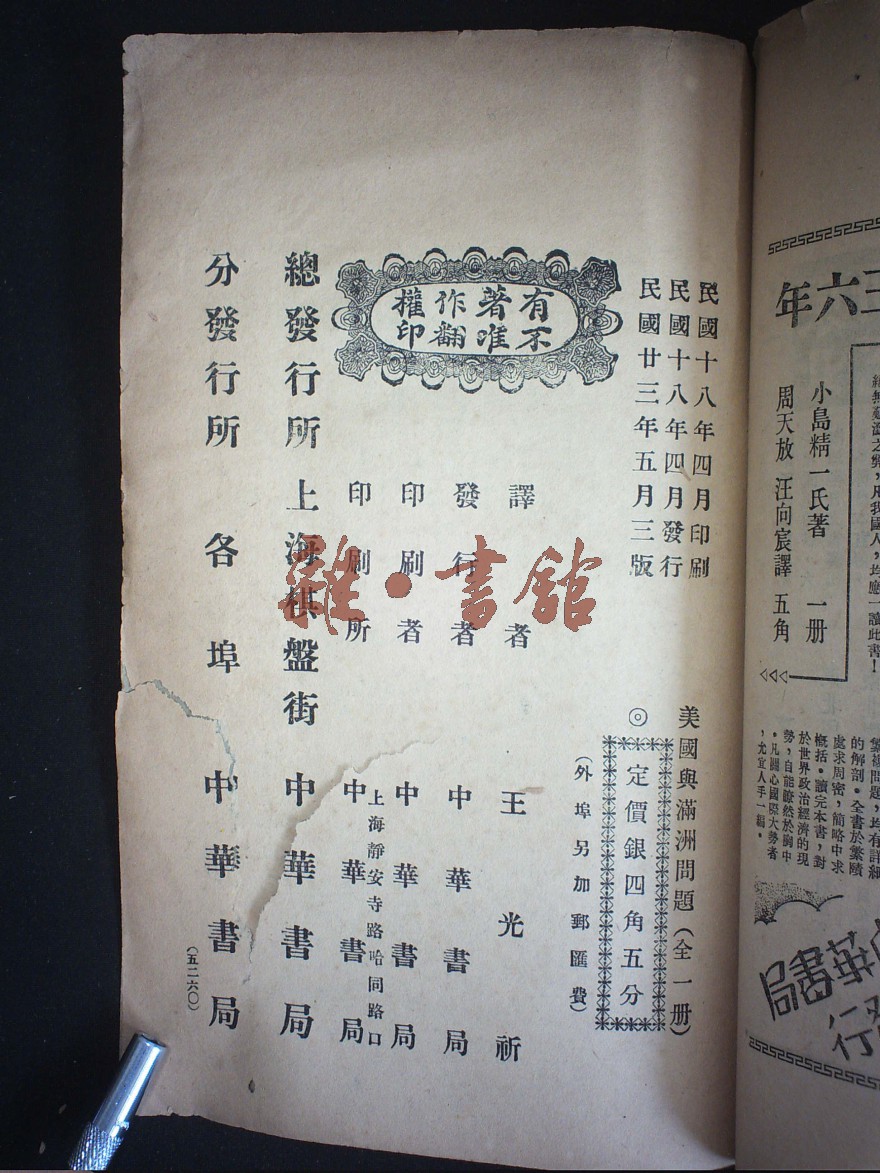 民國十八年四月印刷
民國十八年四月發行
民國廿三年五月三版
美國與滿洲問題（全一册）
◎定價銀四角五分
（外埠另加郵匯費）
有著作權
不准翻印
譯者 王光祈
發行者 中華書局
印刷者 中華書局
上海靜安寺路哈同路口
印刷所 中華書局
總發行所 上海棋盤街 中華書局
分發行所 各埠 中華書局
（五二六〇）
雜·書館
三六年
小島精一氏著 一册
周天放 汪向宸譯 五角
繁複問題，均有詳細
的解剖。全書於繁賾
處求周密，簡略中求
概括。讀完本書，對
於世界政治經濟的現
勢，自能瞭然於胸中
。凡關心國際大勢者
，尤宜人手一編。
華書局
行